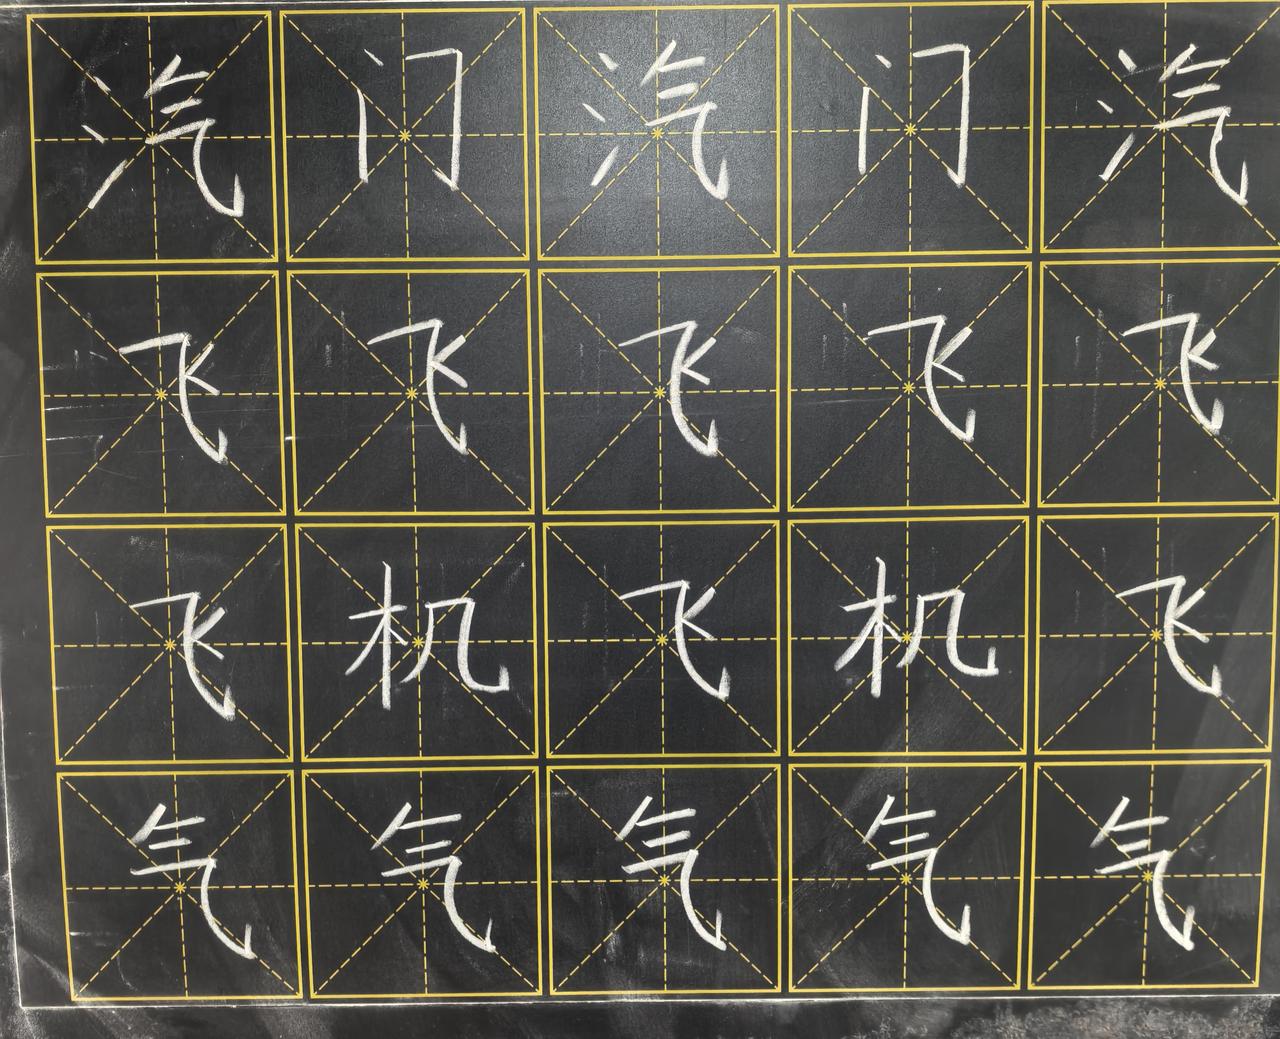 汽门汽门汽
飞飞飞飞飞
飞机飞机飞
气气气气气